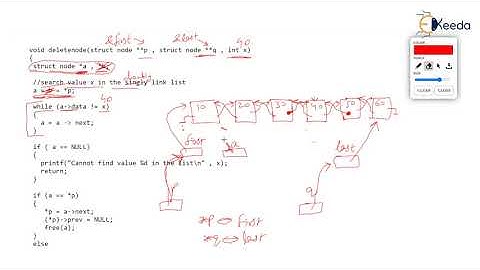 &first &last 40
Ekeeda
void deletenode(struct node **p , struct node **q , int x)
{
struct node *a ,
//search value x in the singly link list
a = *p;
40
while (a->data != x)
{
a = a -> next;
}
10 20 30 40 50 60
first a last
if ( a == NULL)
{
printf("Cannot find value %d in the list\n" , x);
return;
}
p q
if (a == *p)
{
*p = a->next;
(*p)->prev = NULL;
free(a);
}
else
*p first
*q last
CLEAR CLOSE